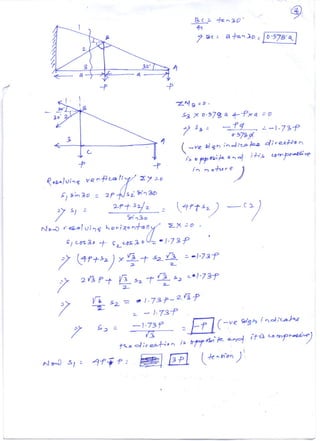 4
BC = tan 30°
a
⇒ BC = a tan 30 = 0.578 a
1
B
2
3
30°
A
a
a
P
P
ΣMB = 0.
S3 × 0.578 a + P × a = 0
⇒ S3 = - Pa / 0.578 a = -1.73 P
(-ve sign indicates direction
is opposite and it is compressive
in nature)
B
3
C
A
P
P
Resolving vertically ΣY = 0
S1 sin 30 = 2P + S2 sin 30
⇒ S1 = 2P + S2/2 / sin 30 = (4P + S2) — (2)
Now resolving horizontally ΣX = 0.
S1 cos 30 + S2 cos 30 = 1.73 P
⇒ (4P + S2) × √3/2 + S2 √3/2 = 1.73 P
⇒ 2√3 P + √3/2 S2 + √3/2 S2 = 1.73 P
⇒ √3 S2 = 1.73 P - 2√3 P
= -1.73 P
⇒ S2 = -1.73 P / √3 = -P (-ve sign indicates
the direction is opposite and it is compressive)
Now S1 = 4P - P = 3P (tension)